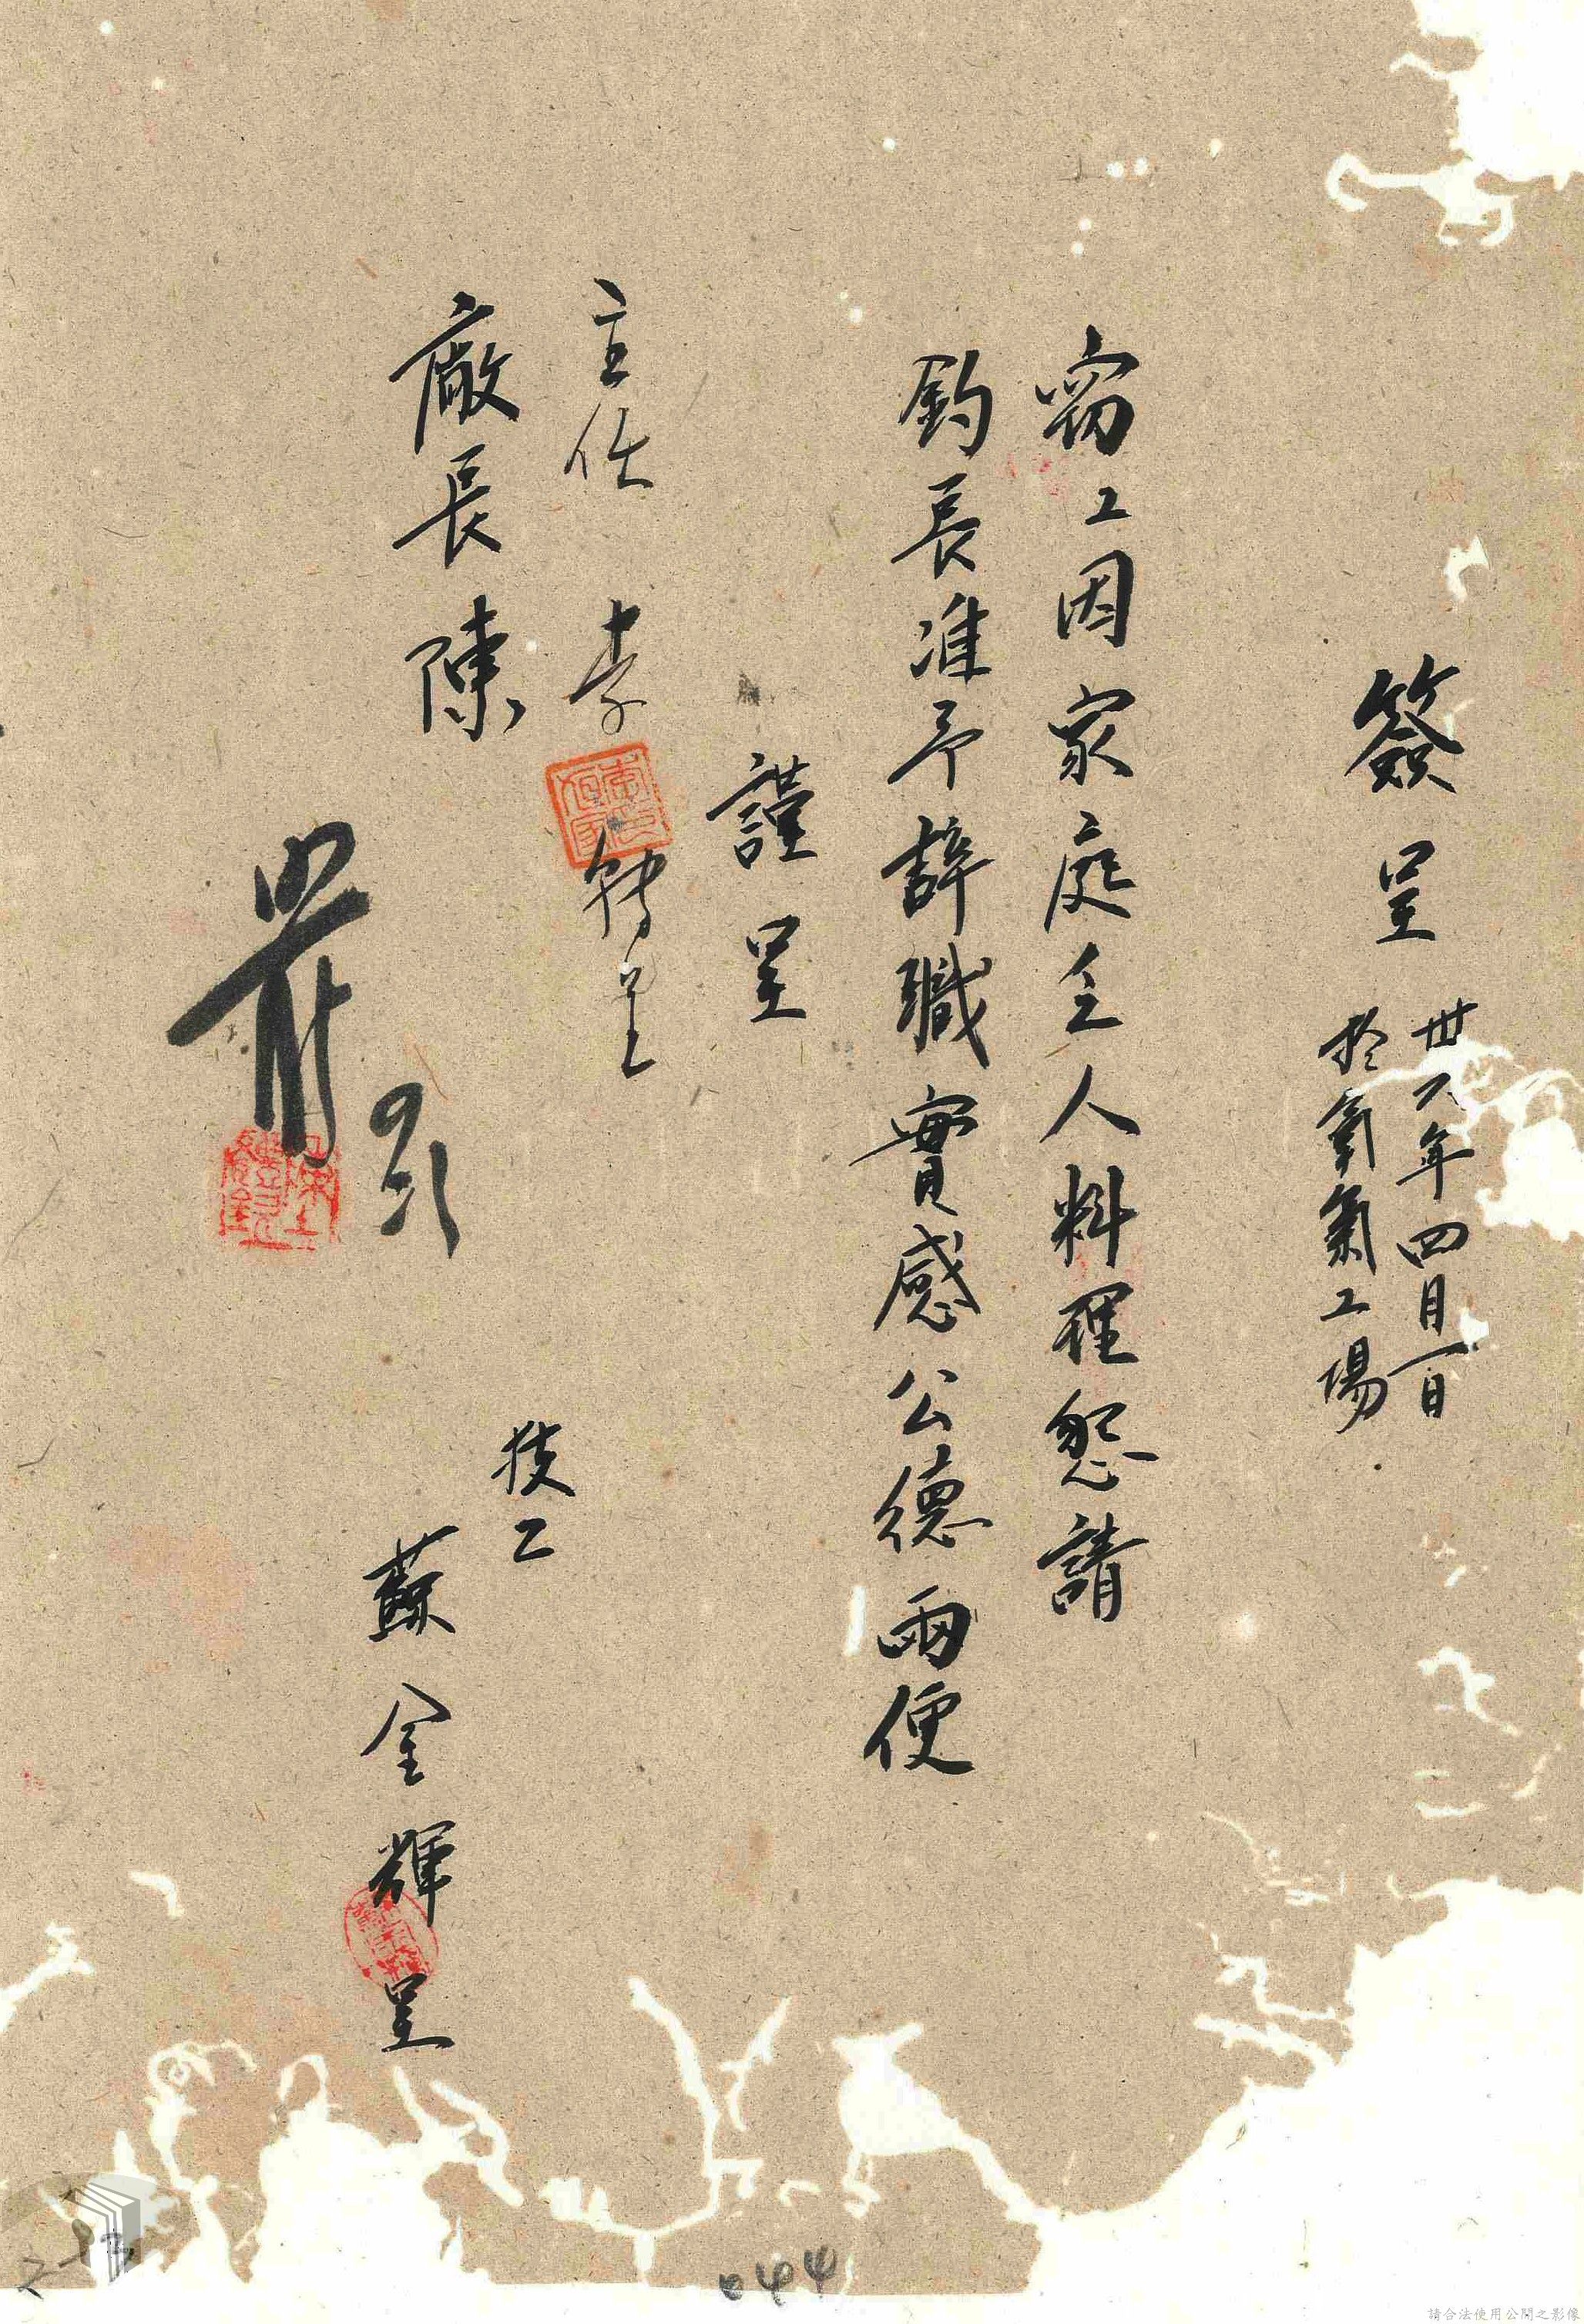 簽呈
卅六年四月一日
於氧氣工場
竊工因家庭乏人料理懇請
鈞長准予辭職實感公德兩便
謹呈
主任 李 轉呈
廠長 陳
技工
蘇金輝呈
044
請合法使用公開之影像